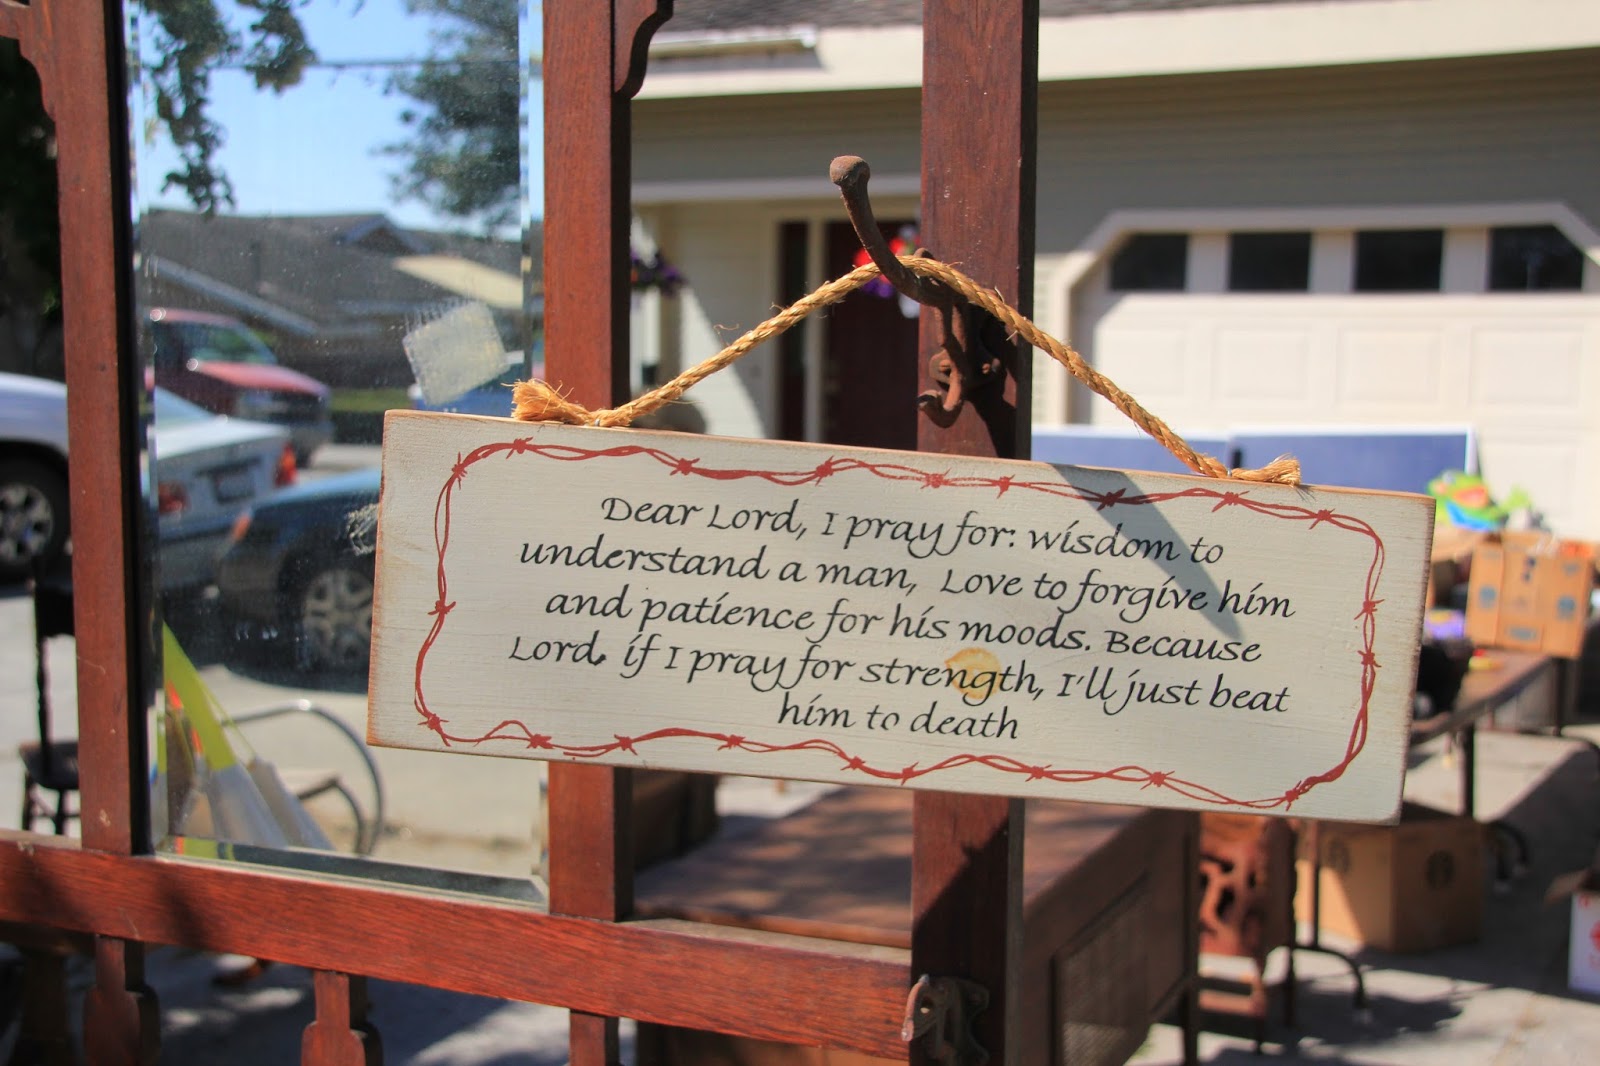 Dear Lord, I pray for: wisdom to
understand a man, Love to forgive him
and patience for his moods. Because
Lord, if I pray for strength, I'll just beat
him to death